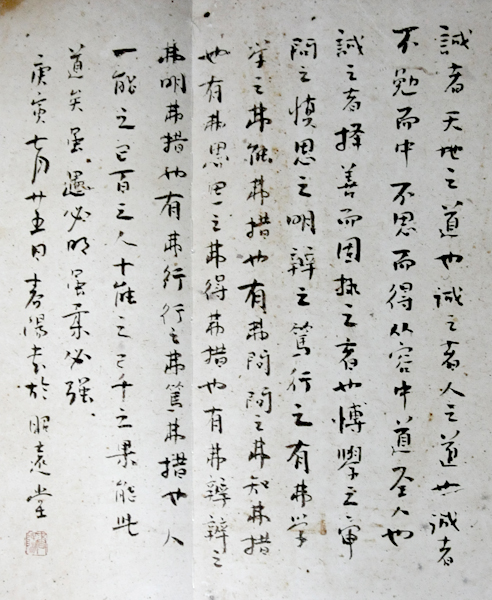 誠者天地之道也誠之者人之道也誠者
不勉而中不思而得从容中道圣人也
誠之者择善而固执之者也博學之审
問之慎思之明辨之篤行之有弗学
学之弗能弗措也有弗問問之弗知弗措
也有弗思思之弗得弗措也有弗辨辨之
弗明弗措也有弗行行之弗篤弗措也人
一能之己百之人十能之己千之果能此
道矣虽愚必明虽柔必强
庚寅七月廿五日春陽書於堂